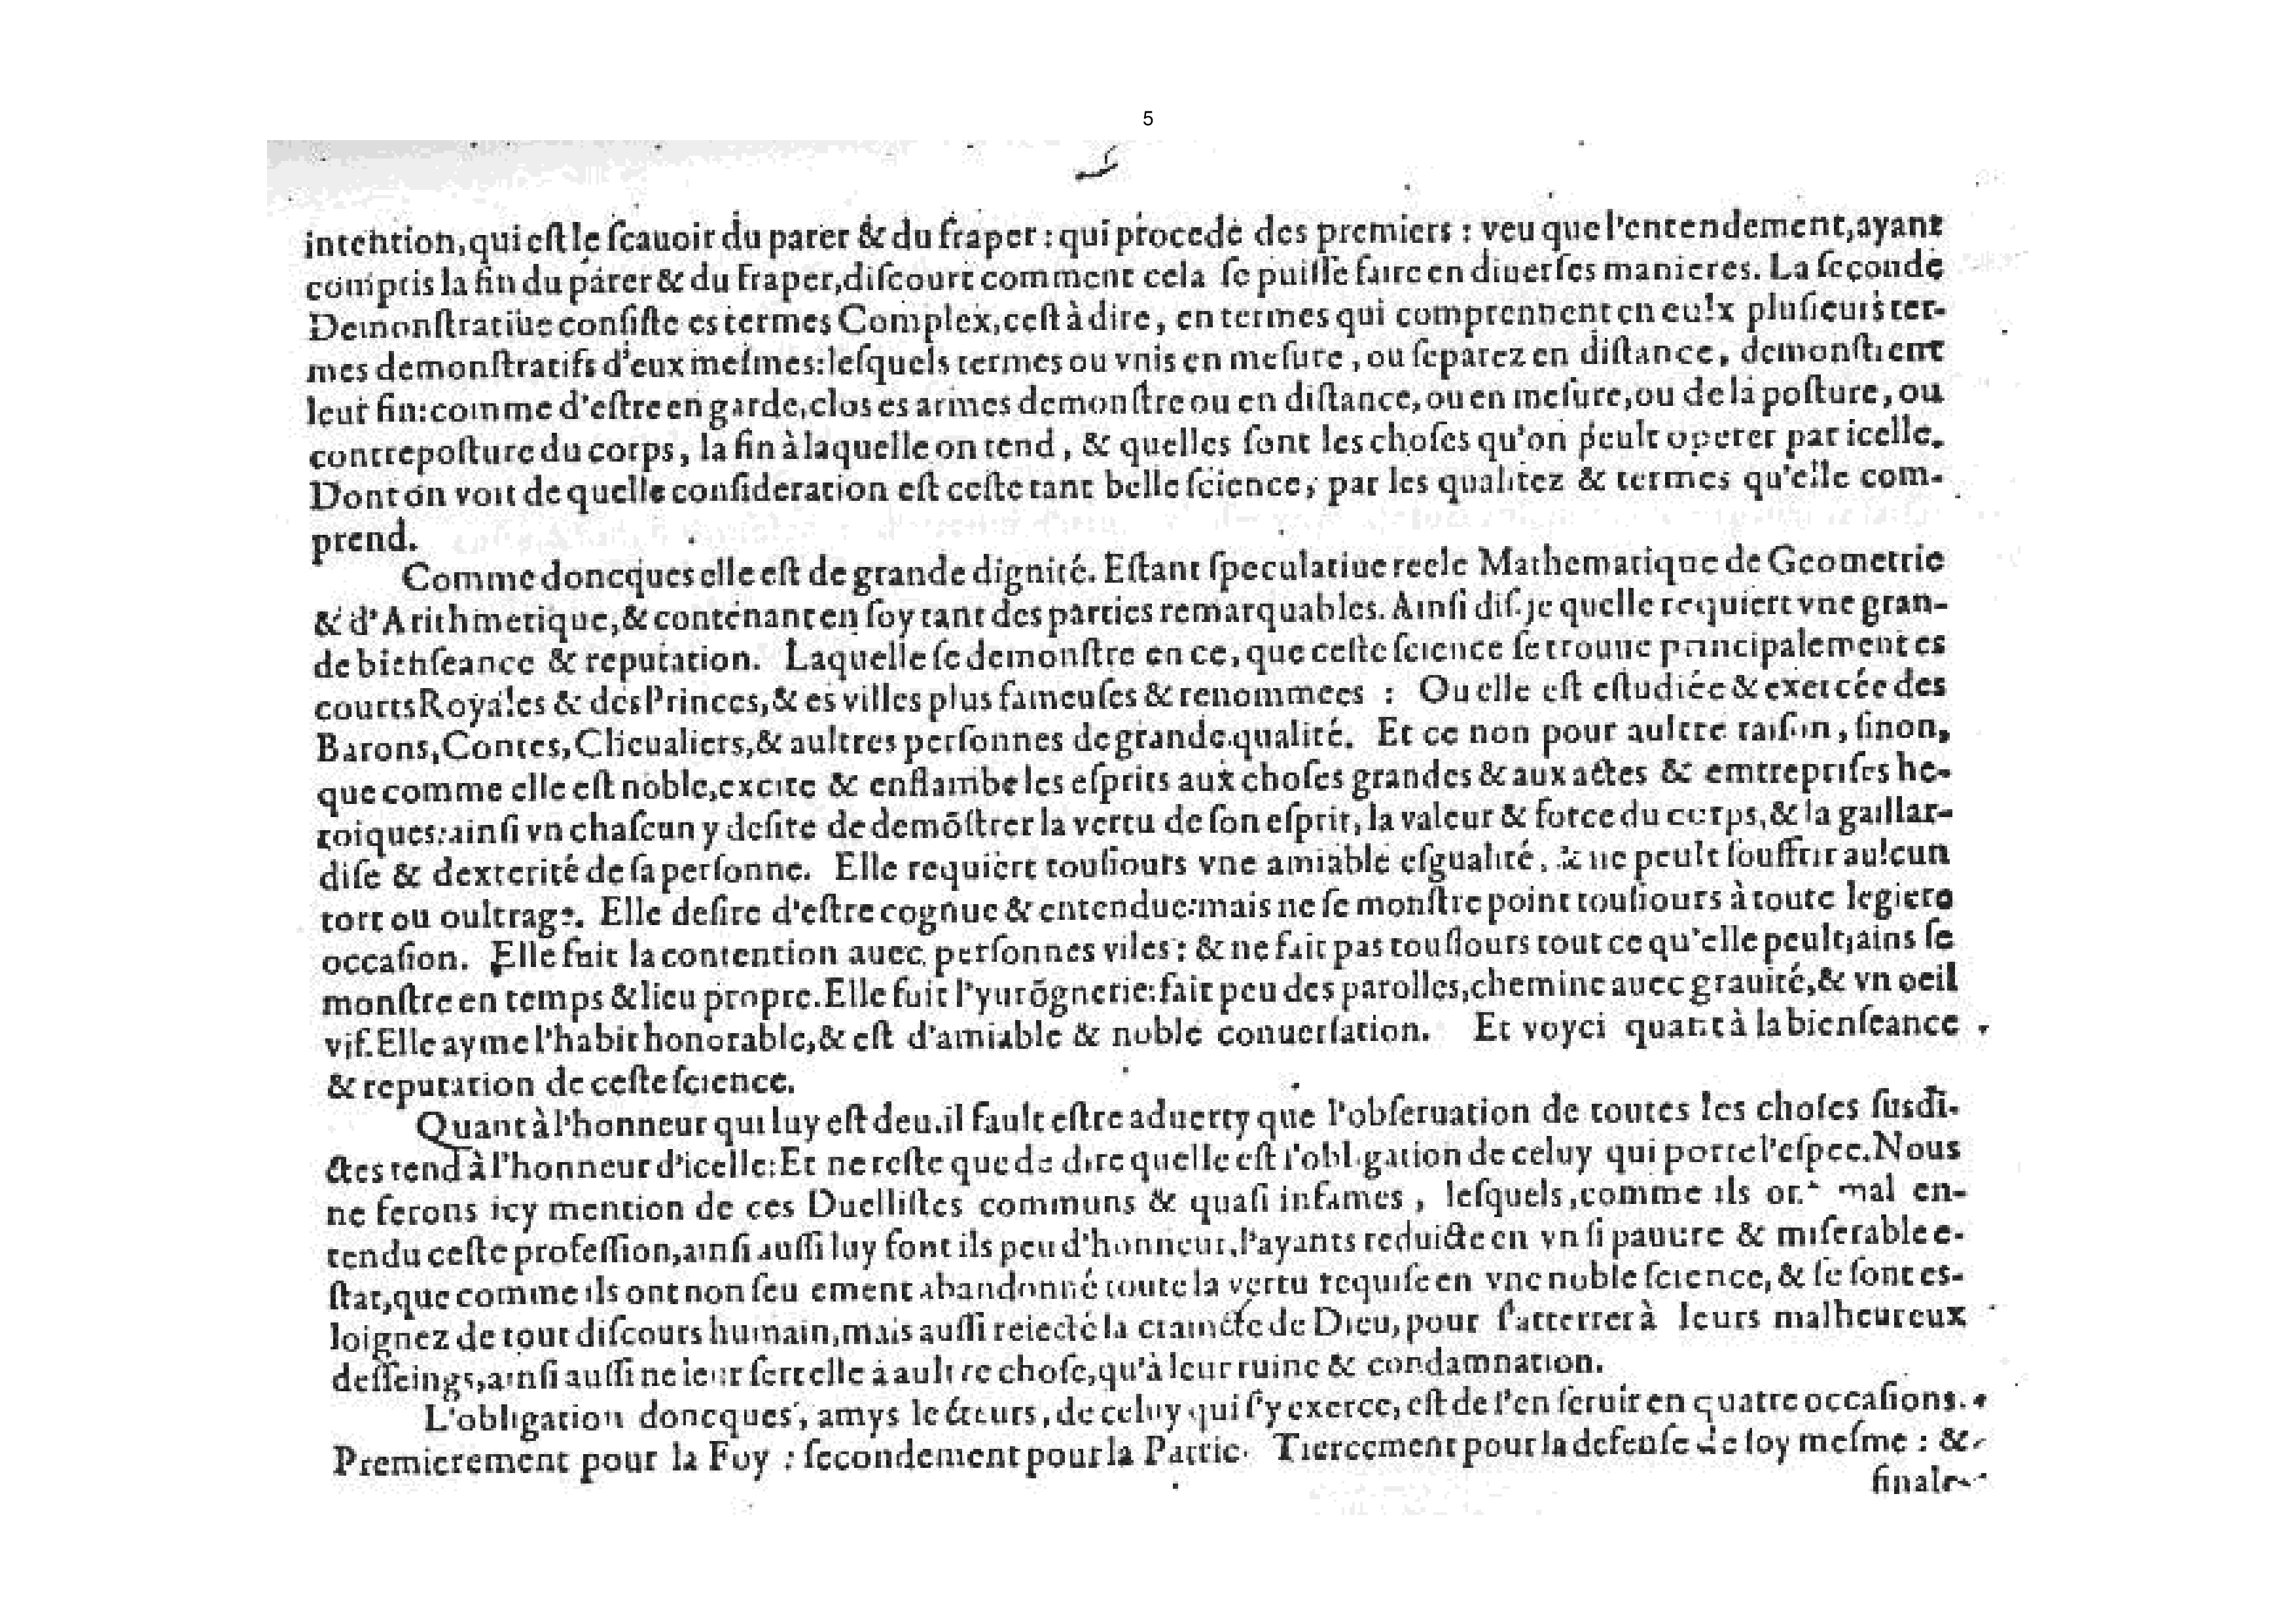 5
intention,qui eſt le ſcauoir du parer & du fraper : qui procede des premiers : veu que l'entendement,ayant
compris la fin du parer & du fraper,diſcourt comment cela ſe puiſſe faire en diuerſes manieres. La ſeconde
Demonſtratiue conſiſte es termes Complex,ceſt à dire, en termes qui comprennent en eulx pluſieurs ter-
mes demonſtratifs d'eux meſmes:leſquels termes ou vnis en meſure, ou ſeparez en diſtance, demonſtrent
leur fin:comme d'eſtre en garde,clos es armes demonſtre ou en diſtance,ou en meſure,ou de la poſture, ou
contrepoſture du corps, la fin à laquelle on tend, & quelles ſont les choſes qu'on peult operer par icelle.
Dont on voit de quelle conſideration eſt ceſte tant belle ſcience, par les qualitez & termes qu'elle com-
prend.
Comme doncques elle eſt de grande dignité. Eſtant ſpeculatiue reele Mathematique de Geometrie
& d'Arithmetique,& contenant en ſoy tant des parties remarquables. Ainſi diſ-je quelle requiert vne gran-
de bienſeance & reputation. Laquelle ſe demonſtre en ce, que ceſte ſcience ſe trouue principalement es
courts Royales & des Princes,& es villes plus fameuſes & renommees : Ou elle eſt eſtudiée & exercée des
Barons,Contes,Cheualiers,& aultres perſonnes de grande qualité. Et ce non pour aultre raiſon, ſinon,
que comme elle eſt noble,excite & enflambe les eſprits aux choſes grandes & aux actes & emtrepriſes he-
roiques:ainſi vn chaſcun y deſire de demõſtrer la vertu de ſon eſprit, la valeur & force du corps,& la gaillar-
diſe & dexterité de ſa perſonne. Elle requiert touſiours vne amiable eſgualité, & ne peult ſouffrir aulcun
tort ou oultrage. Elle deſire d'eſtre cognue & entendue:mais ne ſe monſtre point touſiours à toute legiere
occaſion. Elle fuit la contention auec perſonnes viles : & ne fait pas touſiours tout ce qu'elle peult;ains ſe
monſtre en temps & lieu propre.Elle fuit l'yurõgnerie:fait peu des parolles,chemine auec grauité,& vn oeil
vif.Elle ayme l'habit honorable,& eſt d'amiable & noble conuerſation. Et voyci quant à la bienſeance
& reputation de ceſte ſcience.
Quant à l'honneur qui luy eſt deu.il fault eſtre aduerty que l'obſeruation de toutes les choſes ſusdi-
ctes tend à l'honneur d'icelle:Et ne reſte que de dire quelle eſt l'obligation de celuy qui porte l'eſpee.Nous
ne ferons icy mention de ces Duelliſtes communs & quaſi infames, leſquels,comme ils ont mal en-
tendu ceſte profeſſion,ainſi auſſi luy font ils peu d'honneur,l'ayants reduicte en vn ſi pauure & miſerable e-
ſtat,que comme ils ont non ſeu ement abandonné toute la vertu requiſe en vne noble ſcience, & ſe ſont es-
loignez de tout diſcours humain,mais auſſi reiecté la de Dieu, pour ſ'atterrer à leurs malheureux
deſſeings,ainſi auſſi ne leur ſert elle à aultre choſe,qu'à leur ruine & condamnation.
L'obligation doncques, amys lecteurs, de celuy qui ſ'y exerce, eſt de ſ'en ſeruir en quatre occaſions.
Premierement pour la Foy : ſecondement pour la Patrie. Tiercement pour la defenſe de ſoy meſme : &
finale-